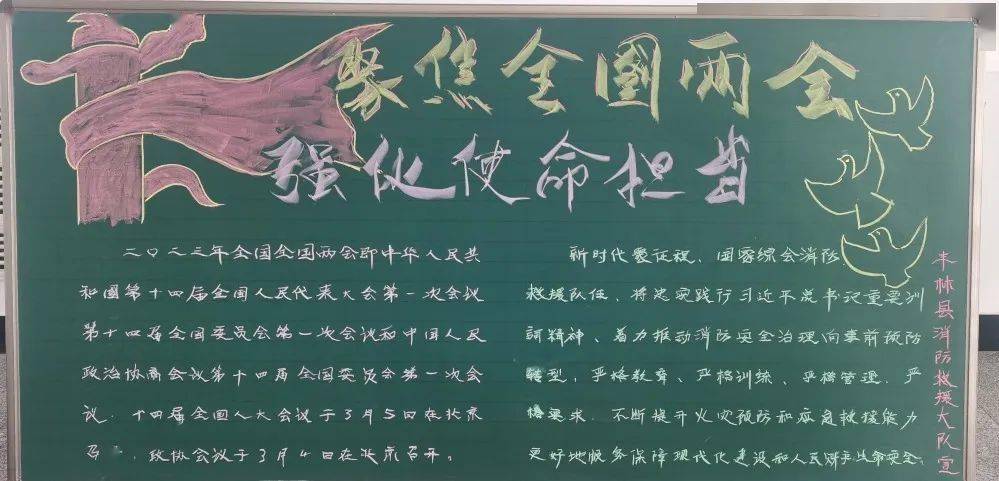 聚焦全国两会
强化使命担当
二〇二三年全国全国两会即中华人民共
和國第十四届全国人民代表大会第一次会议
第十四届全国委员会第一次会议和中国人民
政治协商会议第十四届全国委员会第一次会
议.十四届全国人大会议于3月5日在北京
召 . 政协会议于3月4日在北京召开。
新时代 征程、国家综合消防
救援队伍、将忠实践行习近平总书记重要训
词精神、着力推动消防安全治理向事前预防
转型,严格教育、严格训练、严格管理.严
格要求.不断提升火灾预防和应急救援能力
更好地服务保障现代化建设和人民财产生命安全.
丰林县消防救援大队宣